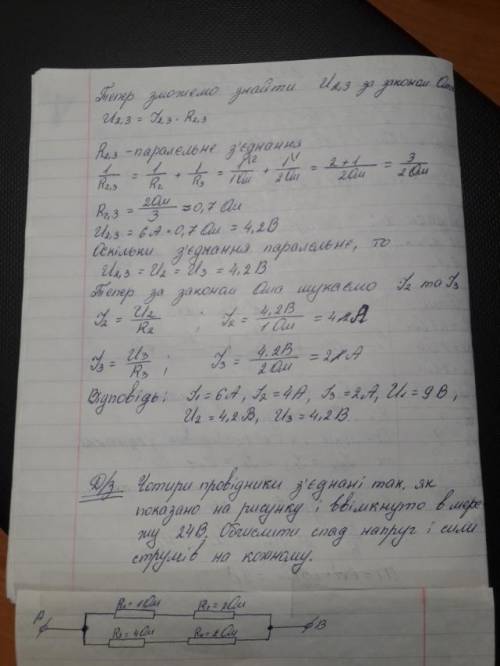 Тепер зможемо знайти U₂,₃ за законом Ома
U₂,₃ = I₂₃ · R₂,₃
R₂,₃ - паралельне з'єднання
1/R₂,₃ = 1/R₂ + 1/R₃ = 1/1Ом + 1/2Ом = 2+1/2Ом = 3/2Ом
R₂,₃ = 2Ом/3 = 0,7 Ом
U₂,₃ = 6А · 0,7 Ом = 4,2В
Оскільки з'єднання паралельне, то
U₂,₃ = U₂ = U₃ = 4,2В
Тепер за законом Ома шукаємо I₂ та I₃
I₂ = U₂/R₂ ; I₂ = 4,2В/1Ом = 4,2А
I₃ = U₃/R₃ ; I₃ = 4.2В/2Ом = 2,1А
Відповідь: I₁ = 6А, I₂ = 4А, I₃ = 2А, U₁ = 9В,
U₂ = 4,2В, U₃ = 4,2В.
Д/з. Чотири провідники з'єднані так, як
показано на рисунку і ввімкнуто в мере
жу 24В. Обчислити спад напруг і сили
струмів на кожному.
=1Ом =2Ом
А В
=4Ом =2Ом